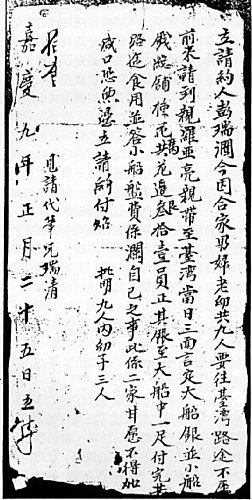 立請約人彭瑞瀾今因合家男婦老幼共九人要往臺灣路途不座
前来請到親羅亞亮親帶至臺灣當日三面言定大船銀並小船
盤費碩俸花共花邊銀叁拾壹員正其銀至大船中一足付完其
路途食用並答小船盤費係瀾自己之事此係二家甘愿不得加
減口恐無憑立請約付炤
批明九人內幼子三人
見請代筆兄瑞清
嘉慶九年正月二十五日立